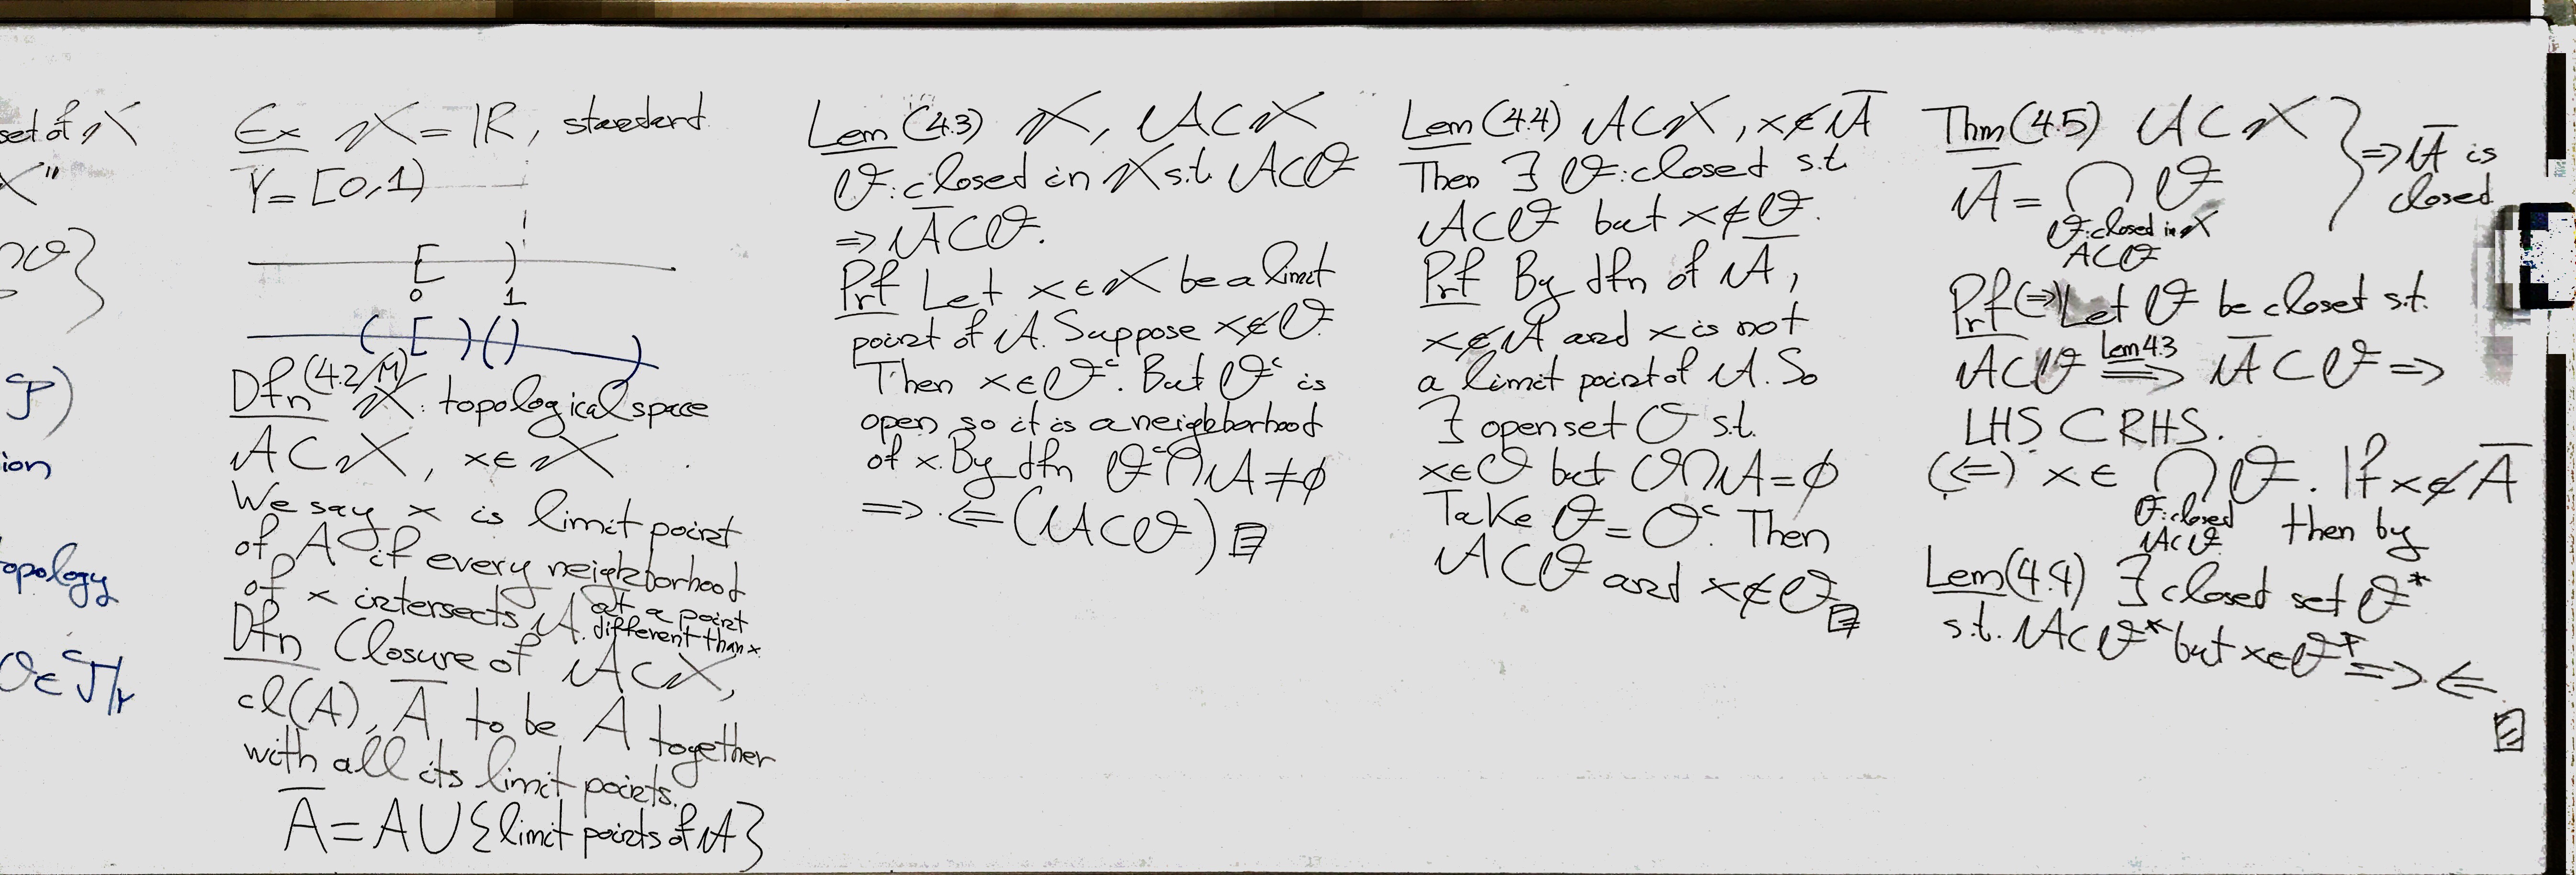 set of X
X"
∩𝒱}
𝒯)
ion
opology
𝒪∈𝒯|Y
Ex X = ℝ, standard
Y = [0,1)
[ )
0 1
( [ ) ( ) )
Dfn (4.2/M) X: topological space
A ⊂ X, x ∈ X
We say x is limit point
of A if every neighborhood
of x intersects A. at a point
different than x.
Dfn Closure of A ⊂ X,
cl(A), A̅ to be A together
with all its limit points.
A̅ = A ∪ {limit points of A}
Lem (4.3) X, A ⊂ X
𝒱: closed in X s.t. A ⊂ 𝒱
⇒ A̅ ⊂ 𝒱.
Prf Let x ∈ X be a limit
point of A. Suppose x ∉ 𝒱.
Then x ∈ 𝒱ᶜ. But 𝒱ᶜ is
open so it is a neighborhood
of x. By dfn 𝒱ᶜ ∩ A ≠ ∅
⇒ ⇐ (A ⊂ 𝒱)
Lem (4.4) A ⊂ X, x ∉ A̅
Then ∃ 𝒱: closed s.t.
A ⊂ 𝒱 but x ∉ 𝒱.
Prf By dfn of A̅,
x ∉ A and x is not
a limit point of A. So
∃ open set 𝒪 s.t.
x ∈ 𝒪 but 𝒪 ∩ A = ∅
Take 𝒱 = 𝒪ᶜ. Then
A ⊂ 𝒱 and x ∉ 𝒱
Thm (4.5) A ⊂ X } ⇒ A̅ is
A̅ = ⋂ 𝒱 closed
𝒱: closed in X
A ⊂ 𝒱
Prf (⇒) Let 𝒱 be closet s.t.
A ⊂ 𝒱 Lem 4.3 ⇒ A̅ ⊂ 𝒱 ⇒
LHS ⊂ RHS.
(⇐) x ∈ ⋂ 𝒱. If x ∉ A̅
𝒱: closed then by
A ⊂ 𝒱
Lem (4.4) ∃ closed set 𝒱*
s.t. A ⊂ 𝒱* but x ∈ 𝒱* ⇒ ⇐